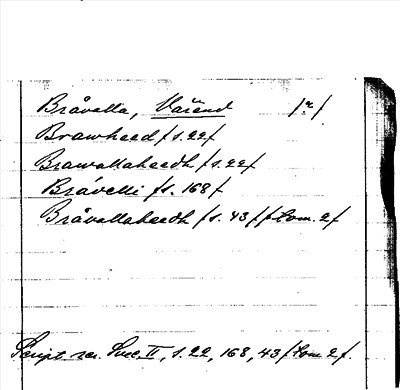 Bråvella, Värend /r/
Brawheed /s. 22/.
Brawallaheedh /s. 22/.
Bråvelli /s. 168/
Bråvallaheedh /s. 43 / /tom. 2/
Script. rer. Suec. II, s. 22, 168, 43 /tom 2/.